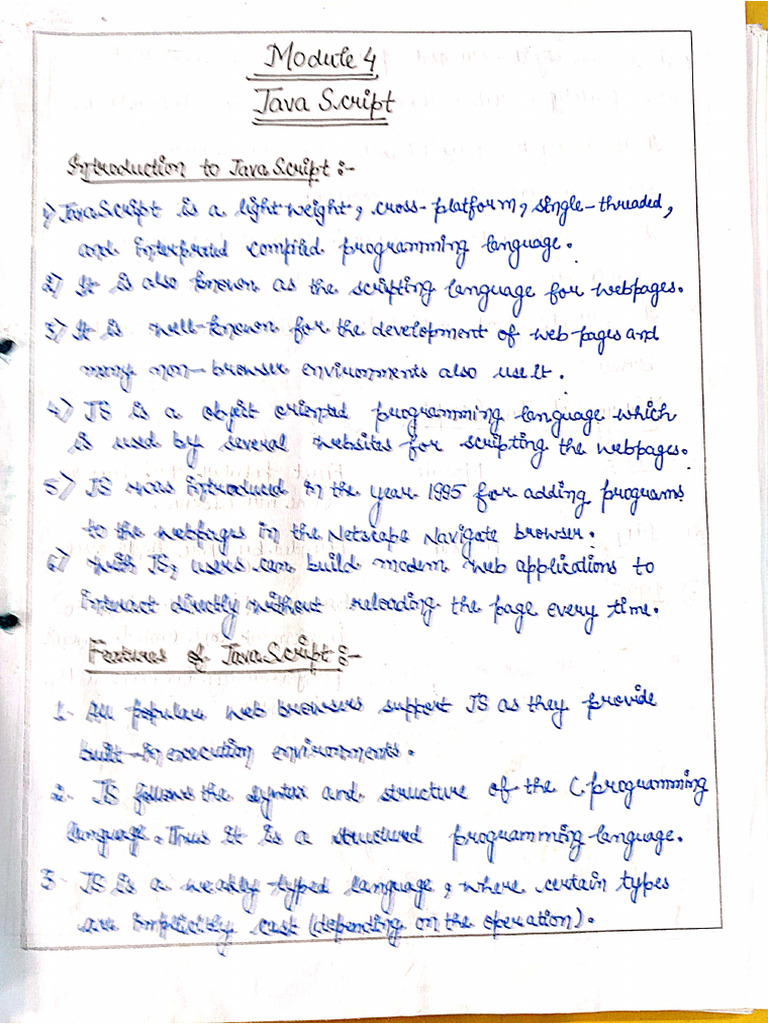 Module 4
Java Script
Introduction to JavaScript :-
1) JavaScript is a light weight, cross-platform, single-threaded,
and interpreted compiled programming language.
2) It is also known as the scripting language for webpages.
3) It is well-known for the development of web-pages and
many non-browser environments also use it.
4) JS is a object oriented programming language which
is used by several websites for scripting the webpages.
5) JS was introduced in the year 1995 for adding programs
to the webpages in the Netscape Navigate browser.
6) With JS, users can build modern web applications to
interact directly without reloading the page every time.
Features of JavaScript :-
1- All popular web browsers support JS as they provide
built-in execution environments.
2- JS follows the syntax and structure of the C programming
language. Thus it is a structured programming language.
3- JS is a weakly typed language, where certain types
are implicitly cast (depending on the operation).